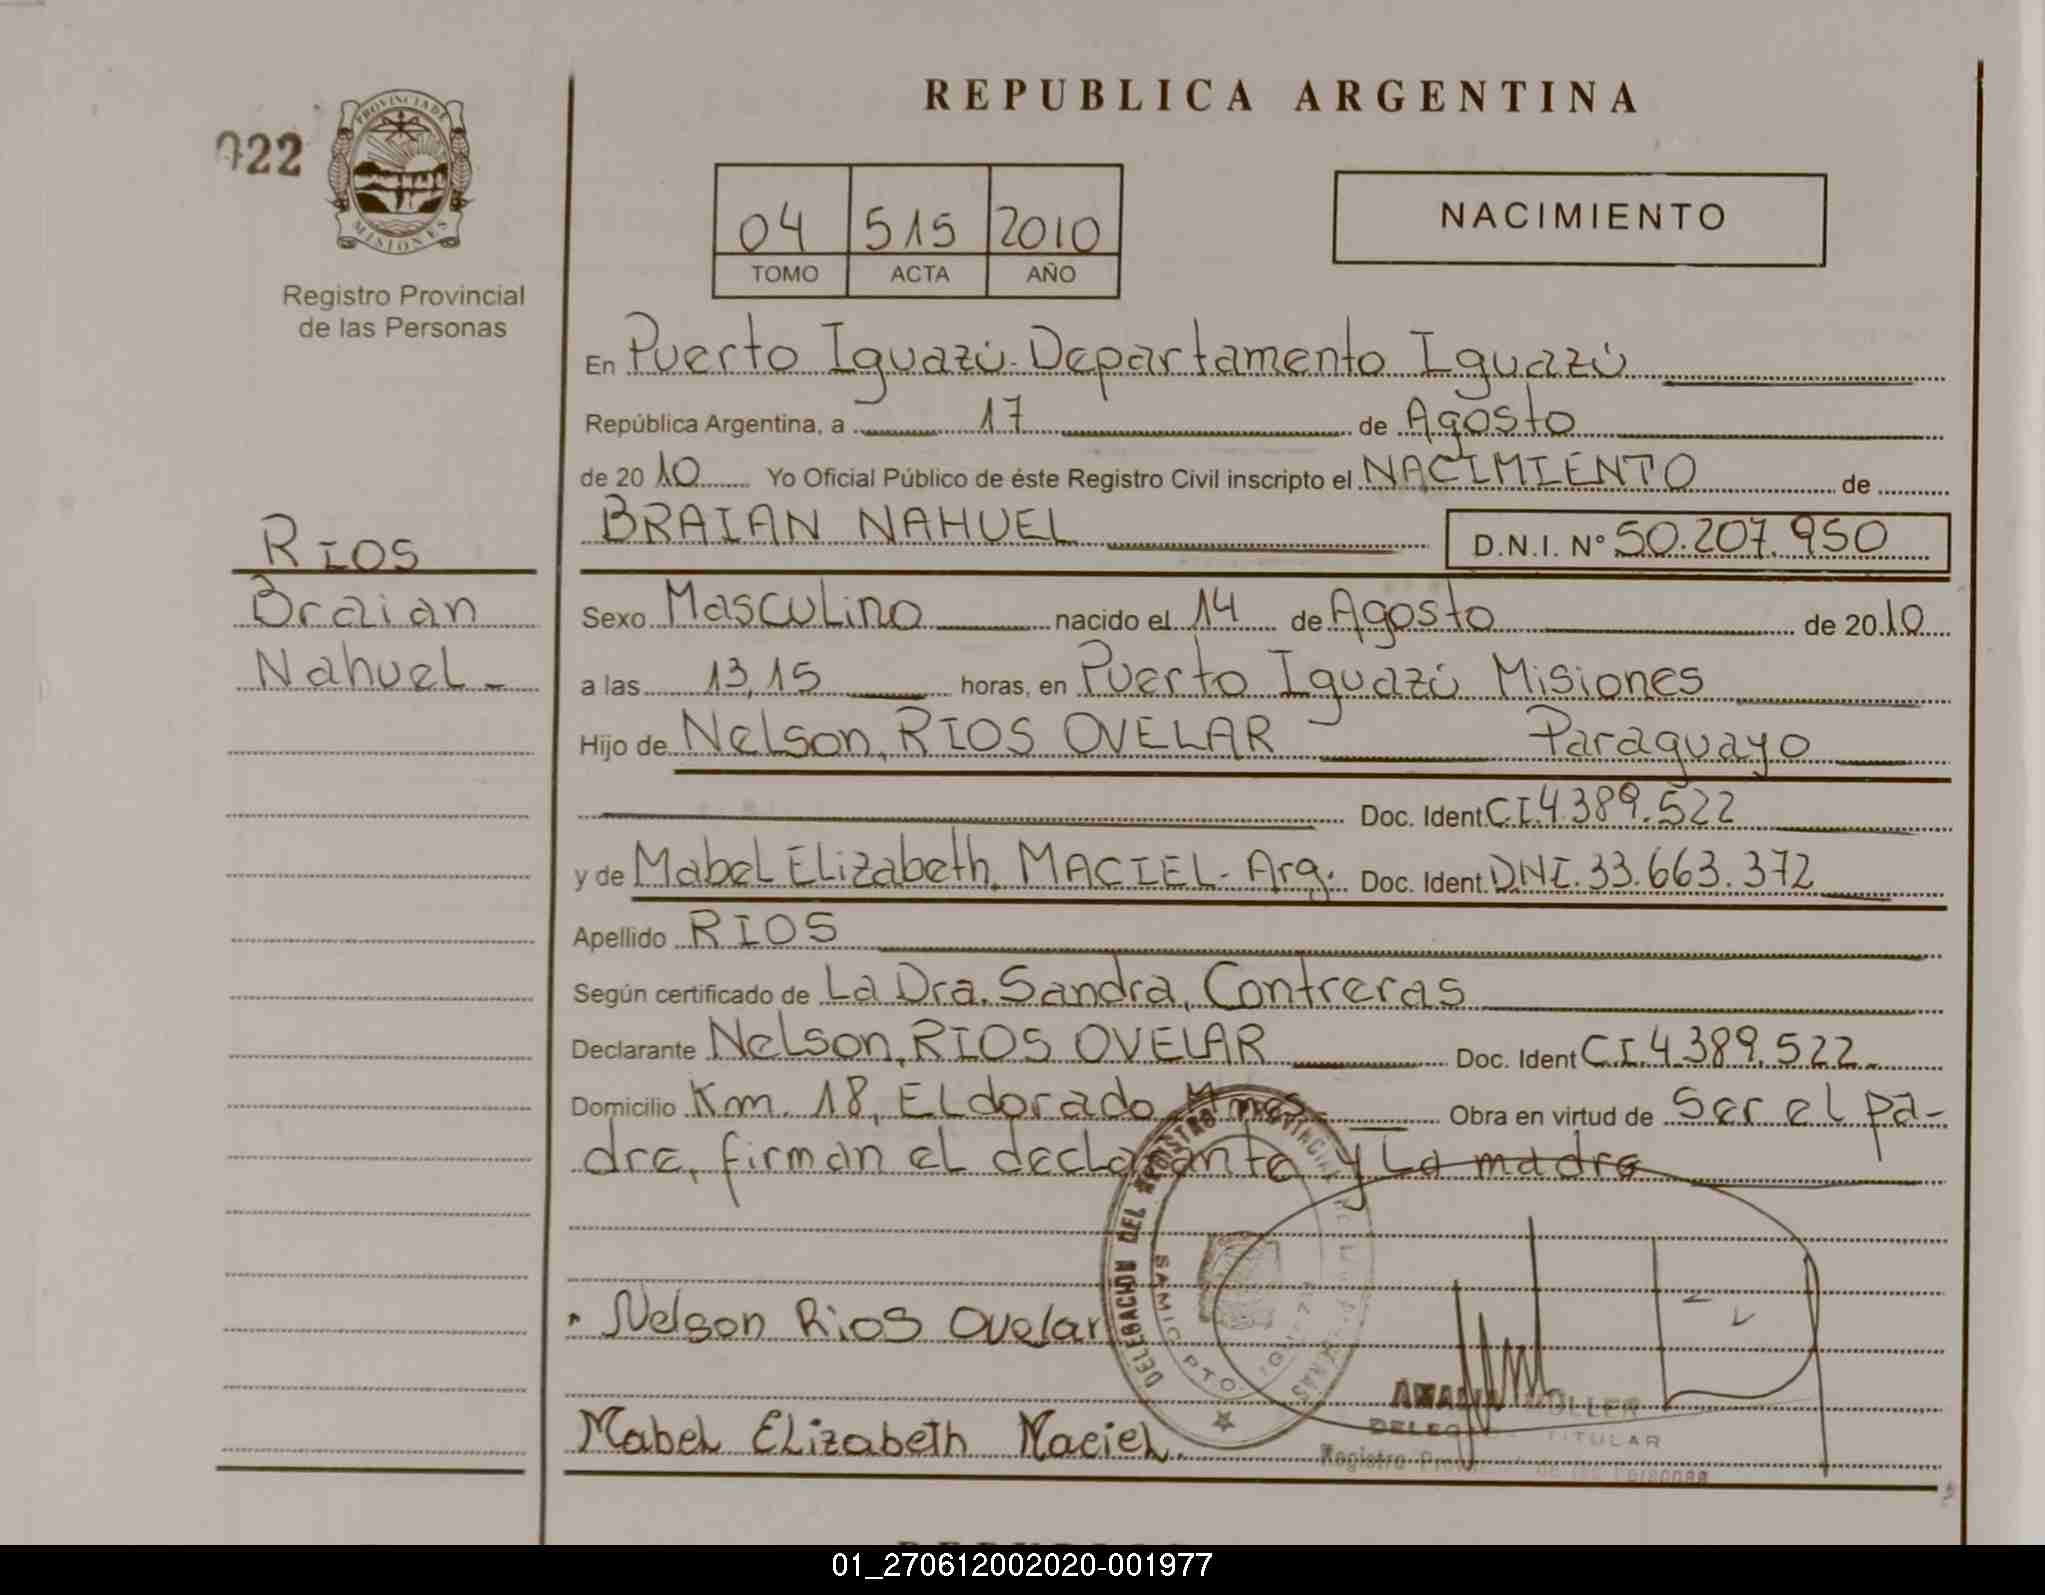 REPUBLICA ARGENTINA
022
PROVINCIA DE
MISIONES
Registro Provincial
de las Personas
04 515 2010
TOMO ACTA AÑO
NACIMIENTO
En Puerto Iguazú - Departamento Iguazú
República Argentina, a 17 de Agosto
de 2010 Yo Oficial Público de éste Registro Civil inscripto el NACIMIENTO de
BRAIAN NAHUEL D.N.I. N° 50.207.950
RIOS
Braian
Nahuel -
Sexo Masculino nacido el 14 de Agosto de 2010
a las 13,15 horas, en Puerto Iguazú Misiones
Hijo de Nelson, RIOS OVELAR Paraguayo
Doc. Ident. CI.4.389.522
y de Mabel Elizabeth, MACIEL - Arg. Doc. Ident. DNI. 33.663.372
Apellido RIOS
Según certificado de La Dra. Sandra, Contreras
Declarante Nelson, RIOS OVELAR Doc. Ident CI.4.389.522.-
Domicilio Km. 18, Eldorado, Mnes. Obra en virtud de Ser el pa-
dre, firman el declarante y la madre
Nelson Rios Ovelar
Mabel Elizabeth Maciel.
DELEGACION DEL REGISTRO PROVINCIAL DE LAS PERSONAS
SAMIC PTO. IGUAZU
MOLLER
TITULAR
Registro Provincial de las Personas
01_270612002020-001977